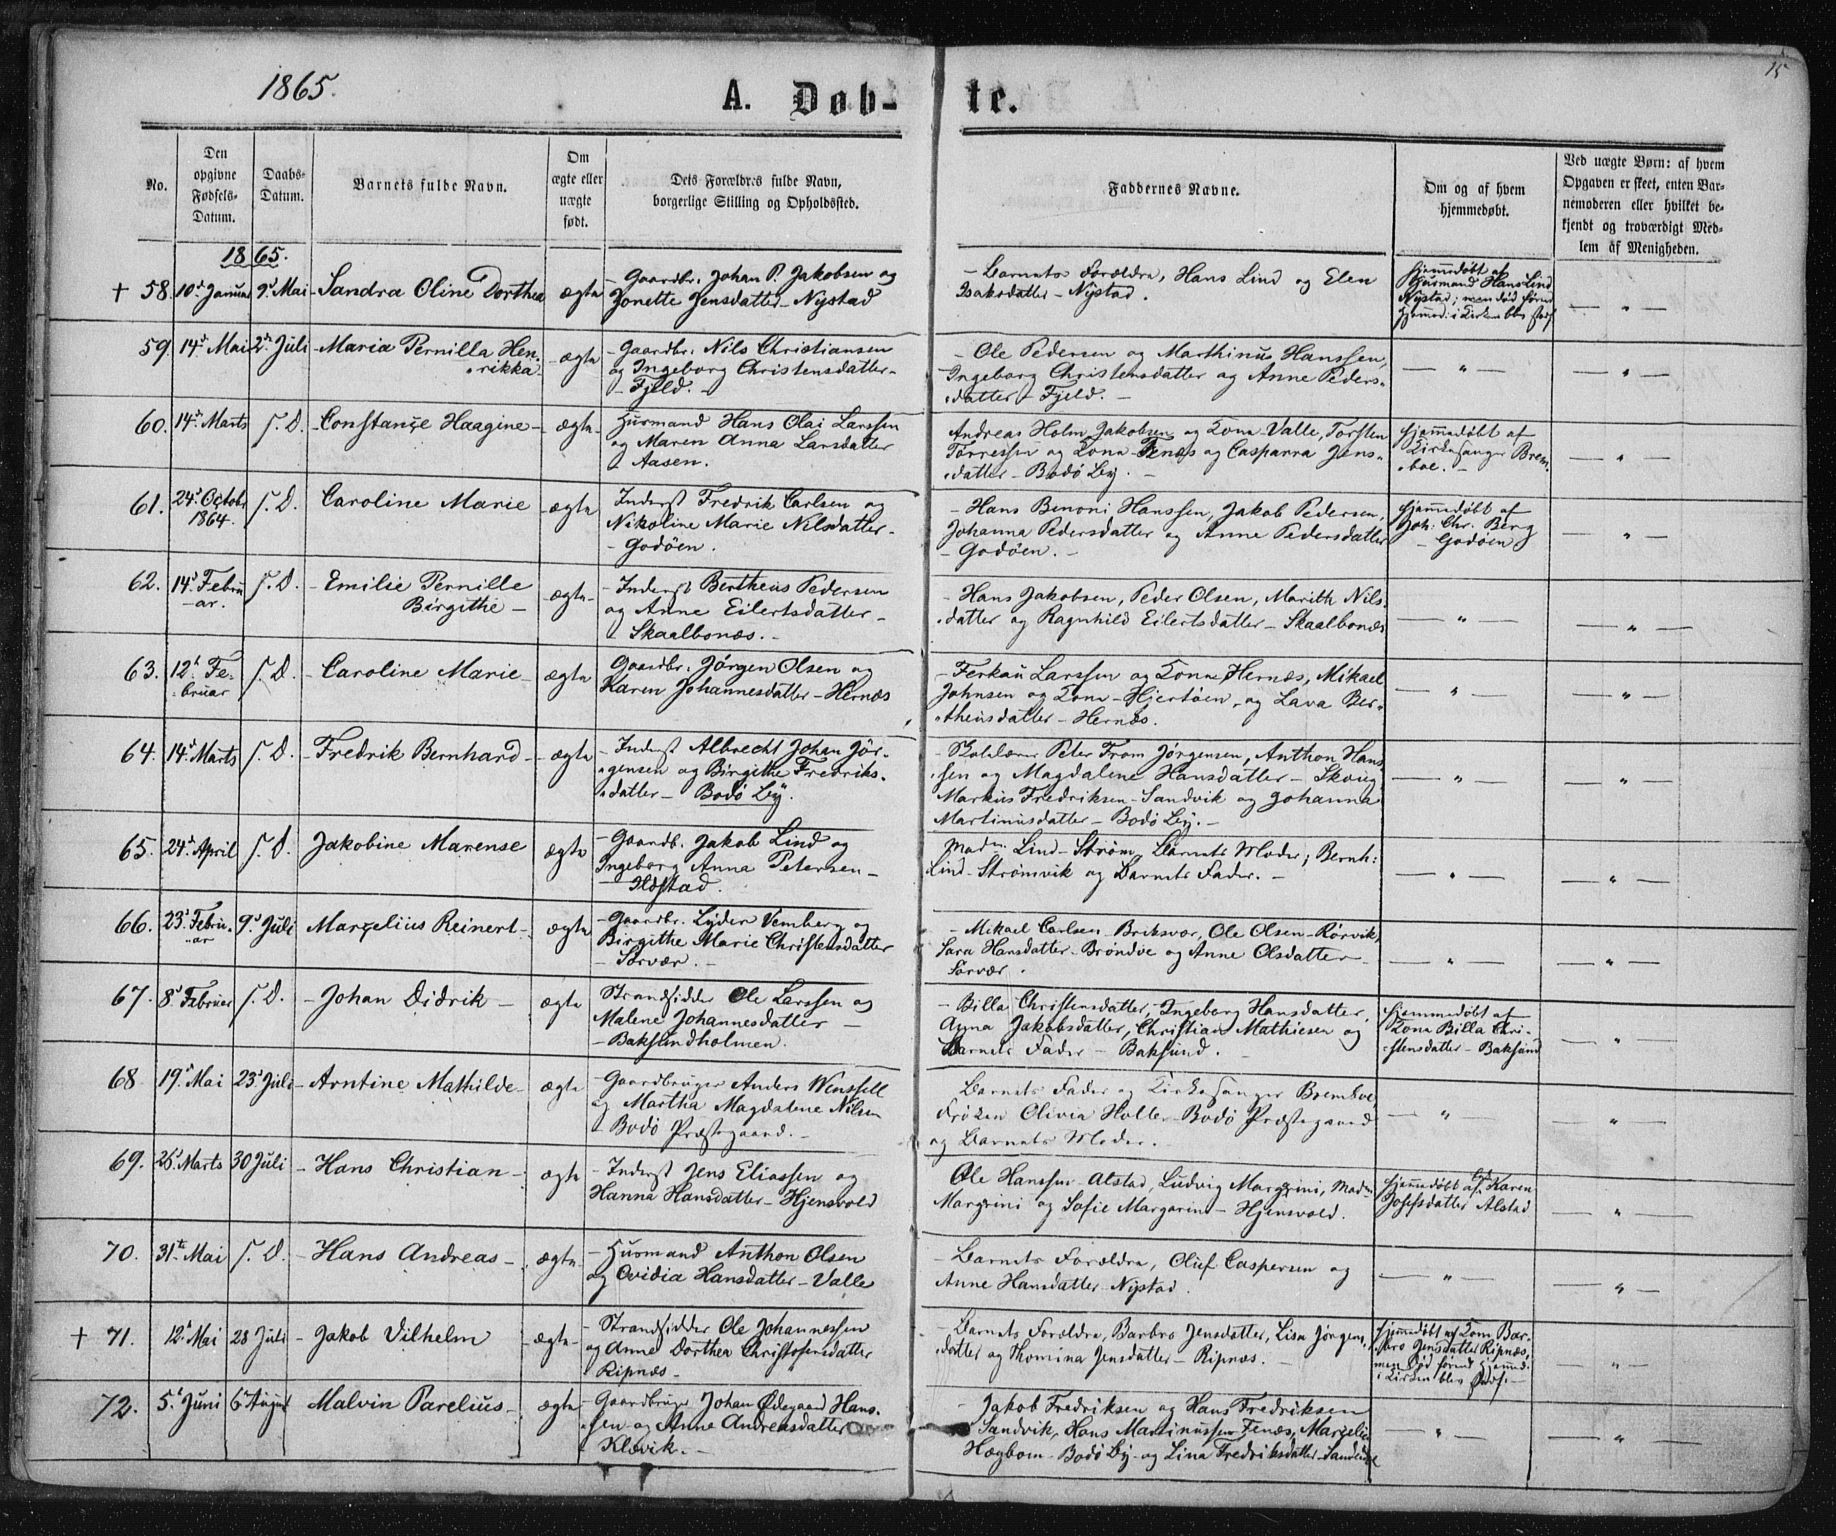 1865.
A. Døb-te.
15
No.
Den opgivne Fødsels-Datum.
Daabs-Datum.
Barnets fulde Navn.
Om ægte eller uægte født.
Dets Forældres fulde Navn, borgerlige Stilling og Opholdssted.
Faddernes Navne.
Om og af hvem hjemmedøbt.
Ved uægte Børn: af hvem Opgaven er skeet, enten Barnemoderen eller hvilket bekjendt og troværdigt Medlem af Menigheden.
1865.
+ 58. 10d Januar 9d Mai Sandra Oline Dorthea ægte
- Gaardbr. Johan P. Jakobsen og
Jonette Jensdatter - Nystad
- Barnets Forældre, Hans Lind og Elen
Isaksdatter - Nystad.
Hjemmedøbt af
Husmand Hans Lind
Nystad; men død førend
Hjemmed. i Kirken blev stadf.
— " —
59. 14d Mai 2d Juli - Maria Pernilla Hen-
rikka - ægte
- Gaardbr. Nils Christiansen
og Ingeborg Christensdatter -
- Fjeld. -
- Ole Pedersen og Marthinus Hanssen,
Ingeborg Christensdatter og Anne Peders-
datter - Fjeld. -
— " —
— " —
60. 14d Marts s. D. - Constance Haagine - ægte -
Husmand Hans Olai Larssen
og Maren Anna Larsdatter
- Aasen.
Andreas Holm Jakobsen og Kona - Valle, Torsten
Tørressen og Kona - Fenæs og Casparra Jens-
datter - Bodö By. -
Hjemmedøbt af
Kirkesanger Brem-
boe. -
— " —
61. 24d Octobr
1864. s. D. - Caroline Marie - ægte
- Inderst Fredrik Carlsen og
Nikoline Marie Nilsdatter -
- Godöen.
- Hans Benoni Hanssen, Jakob Pedersen,
Johanna Pedersdatter og Anne Pedersdatter
- Godöen. -
Hjemmedøbt af
Joh. Chr. Berg
- Godöen
— " —
62. 14d Febru-
ar. s. D. - Emilie Pernille
Birgithe - ægte -
- Inderst Bertheus Pedersen
og Anne Eilertsdatter -
- Skaalbonæs. -
- Hans Jakobsen, Peder Olsen, Marith Nils-
datter og Ragnhild Eilertsdatter - Skaalbonæs
— " —
— " —
63. 12d Fe-
bruar s. D. - Caroline Marie - ægte
Gaardbr. Jörgen Olsen og
Karen Johannesdatter - Hernæs
- Ferkau Larssen og Kona Hernæs, Mikael
Johnsen og Kona - Hjertöen, og Lava Ber-
theusdatter - Hernæs.
— " —
— " —
64. 14d Marts s. D. - Fredrik Bernhard - ægte
- Inderst Albrecht Johan Jör-
gensen og Birgithe Fredriks-
datter - Bodö By.
- Skolelærer Peter From Jörgensen, Anthon Hans-
sen og Magdalene Hansdatter - Skaug
Markus Fredriksen - Sandvik og Johanna
Martinusdatter - Bodö By. -
— " —
— " —
65. 24d April s. D. - Jakobine Marense ægte
- Gaardb. Jakob Lind og
Ingeborg Anna Petersen -
Madm. Lind - Ström, Barnets Moder, Bernh:
Lind - Strömsvik og Barnets Fader. -
— " —
— " —
66. 23d Febru-
ar 9d Juli - Marcelius Reinert - ægte
- Gaardbr. Lyder Vemberg og
Birgithe Marie Christensdatter
- Sörvær. -
- Mikael Carlsen - Briksvær, Ole Olsen - Rörvik,
Sara Hansdatter - Bröndöe og Anne Olsdatter -
Sörvær.
— " —
— " —
67. 8d Februar s. D. - Johan Didrik - ægte
Strandsidder Ole Larssen og
Malene Johannesdatter -
- Baksundholmen. -
- Billa Christensdatter, Ingeborg Hansdatter,
Anna Jakobsdatter, Christian Mathiesen og
Barnets Fader - Baksund.
Hjemmedøbt af
Kona Billa Chri-
stensdatter - Baksund
— " —
68 19d Mai 23d Juli - Arntine Mathilde - ægte
- Gaardbruger Anders Wenssell
og Martha Magdalene Nilsen
- Bodö Præstegaard. -
- Barnets Fader og Kirkesanger Bremboe,
Fröken Olivia Holter - Bodö Præstegaard
og Barnets Moder. -
— " —
— " —
69. 25d Marts 30 Juli - Hans Christian - ægte
- Inderst Jens Eliassen og
Hanna Hansdatter - Hjensvold
Ole Hanssen - Alstad, Ludvig Margrini, Madm.
Margrini og Sofie Margarine - Hjensvold.
Hjemmedøbt af Karen
Josefsdatter Alstad
— " —
70. 31te Mai s. D. - Hans Andreas - ægte
- Husmand Anthon Olsen
og Ovidia Hansdatter - Valle
- Barnets Forældre, Oluf Caspersen og
Anne Hansdatter - Nystad.
— " —
— " —
+ 71. 12d Mai 23 Juli - Jakob Vilhelm - ægte
- Strandsidder Ole Johannessen
og Anne Dorthea Christofersdatter
Ripnæs -
- Barnets Forældre, Barbro Jensdatter, Lisa Jörgens-
datter og Thomina Jensdatter - Ripnæs. -
Hjemmedøbt af Kone Bar-
bro Jensdatter Ripnæs,
men død førend Hjemmed.
i Kirken blev stadf. -
— " —
72. 5d Juni 6 August - Malvin Parelius - ægte
- Gaardbruger Johan Ødegaard Hans-
sen og Anne Andreasdatter
Klövik. -
- Jakob Fredriksen og Hans Fredriksen
Sandvik, Hans Martinussen Fenæs, Marcelie
Hægbom - Bodö By - og Lina Fredriksdatter - Sandvik
— " —
— " —